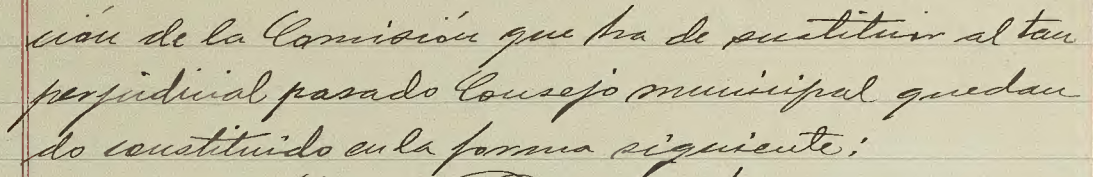 ción de la Comisión que ha de sustituir al tan
perjudicial pasado Consejo municipal quedan
do constituido en la forma siguiente: